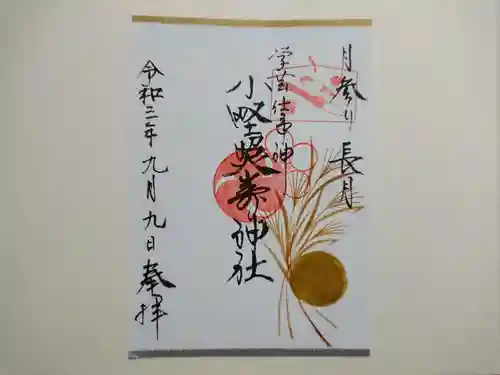 月参り 長月
学芸仕事神
小野照崎神社
令和三年九月九日 奉拝